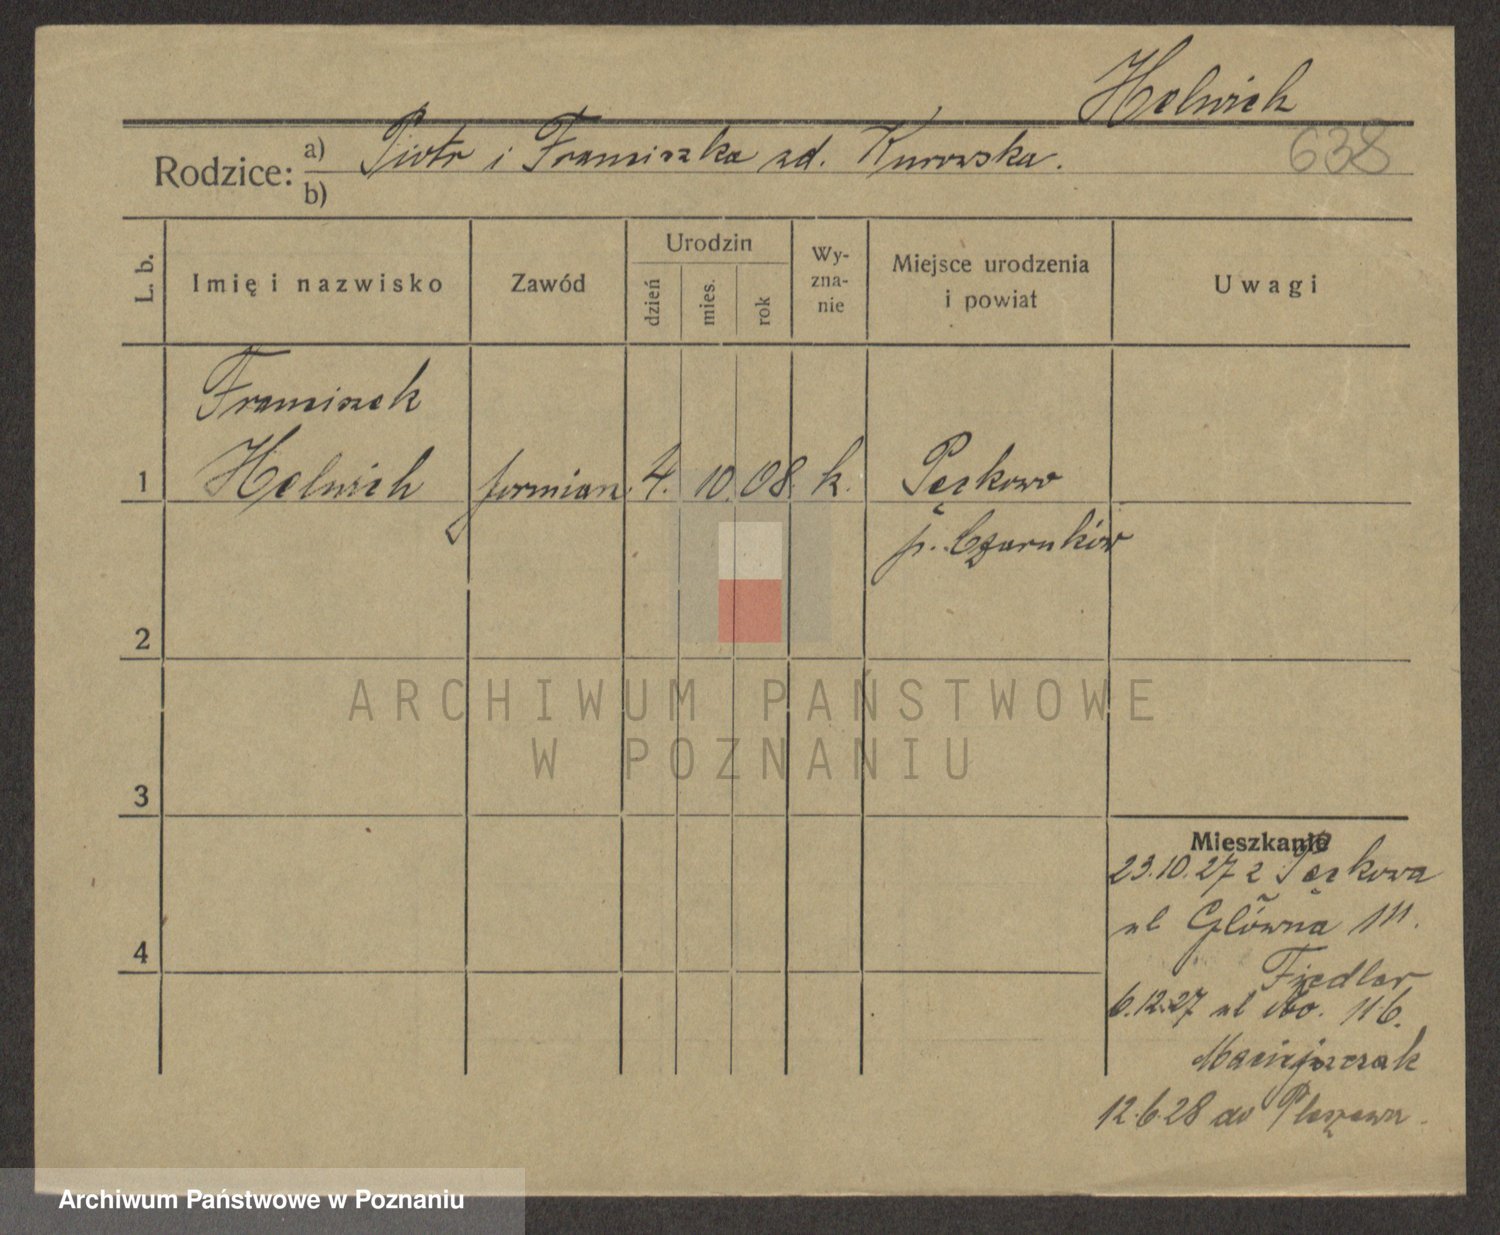 Helwich
638
Rodzice: a) Piotr i Franciszka zd. Kurowska.
b)
L. b.
Imię i nazwisko
Zawód
Urodzin
dzień
mies.
rok
Wy-
zna-
nie
Miejsce urodzenia
i powiat
Uwagi
Franciszek
1 Helwich formiarz 4. 10. 08. k. Pęckowo
p. Czarnków
2
ARCHIWUM PAŃSTWOWE
W POZNANIU
3
Mieszkanie
23.10.27 z Pęckowa
ul Główna 111.
4
Fiedler
6.12.27 ul 116.
Maciejszczak
12.6.28 do Pleszewa.
Archiwum Państwowe w Poznaniu